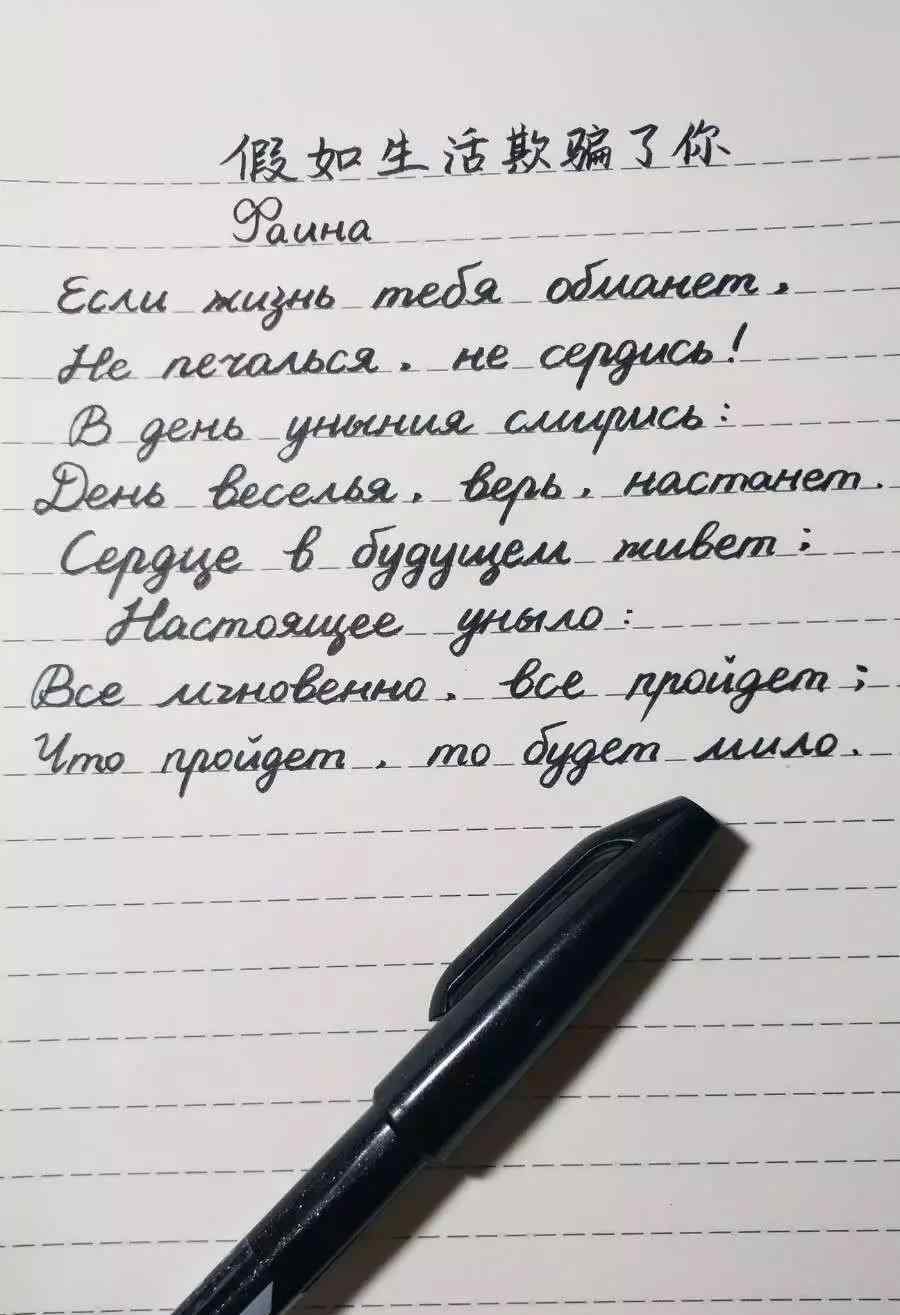 假如生活欺骗了你
Фаина
Если жизнь тебя обманет,
Не печалься, не сердись!
В день уныния смирись:
День веселья, верь, настанет.
Сердце в будущем живет;
Настоящее уныло:
Все мгновенно, все пройдет;
Что пройдет, то будет мило.